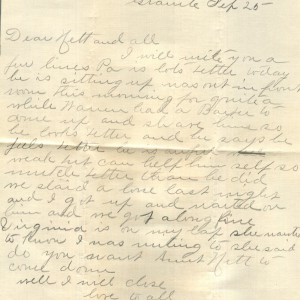 Granite Sep 25
Dear Nett and all
I will write you a
few lines Pa is lots better today
he is sitting up was out in front
room this morning for quite a
while Warren had a Barber to
come up and shave him so
he looks better and he says he
feels better he is
weak but can help him self so
much better than he did
we staid a lone last night
and I got up and waited on
him and we got along fine
Virginia is on my lap she wanted
to know I was writing to she said
do you want Aunt Nett to
come down
well I will close
love to all